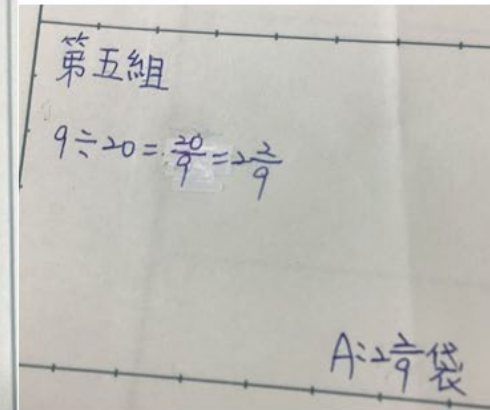 第五組
9÷20=20/9=2 2/9
A:2 2/9袋